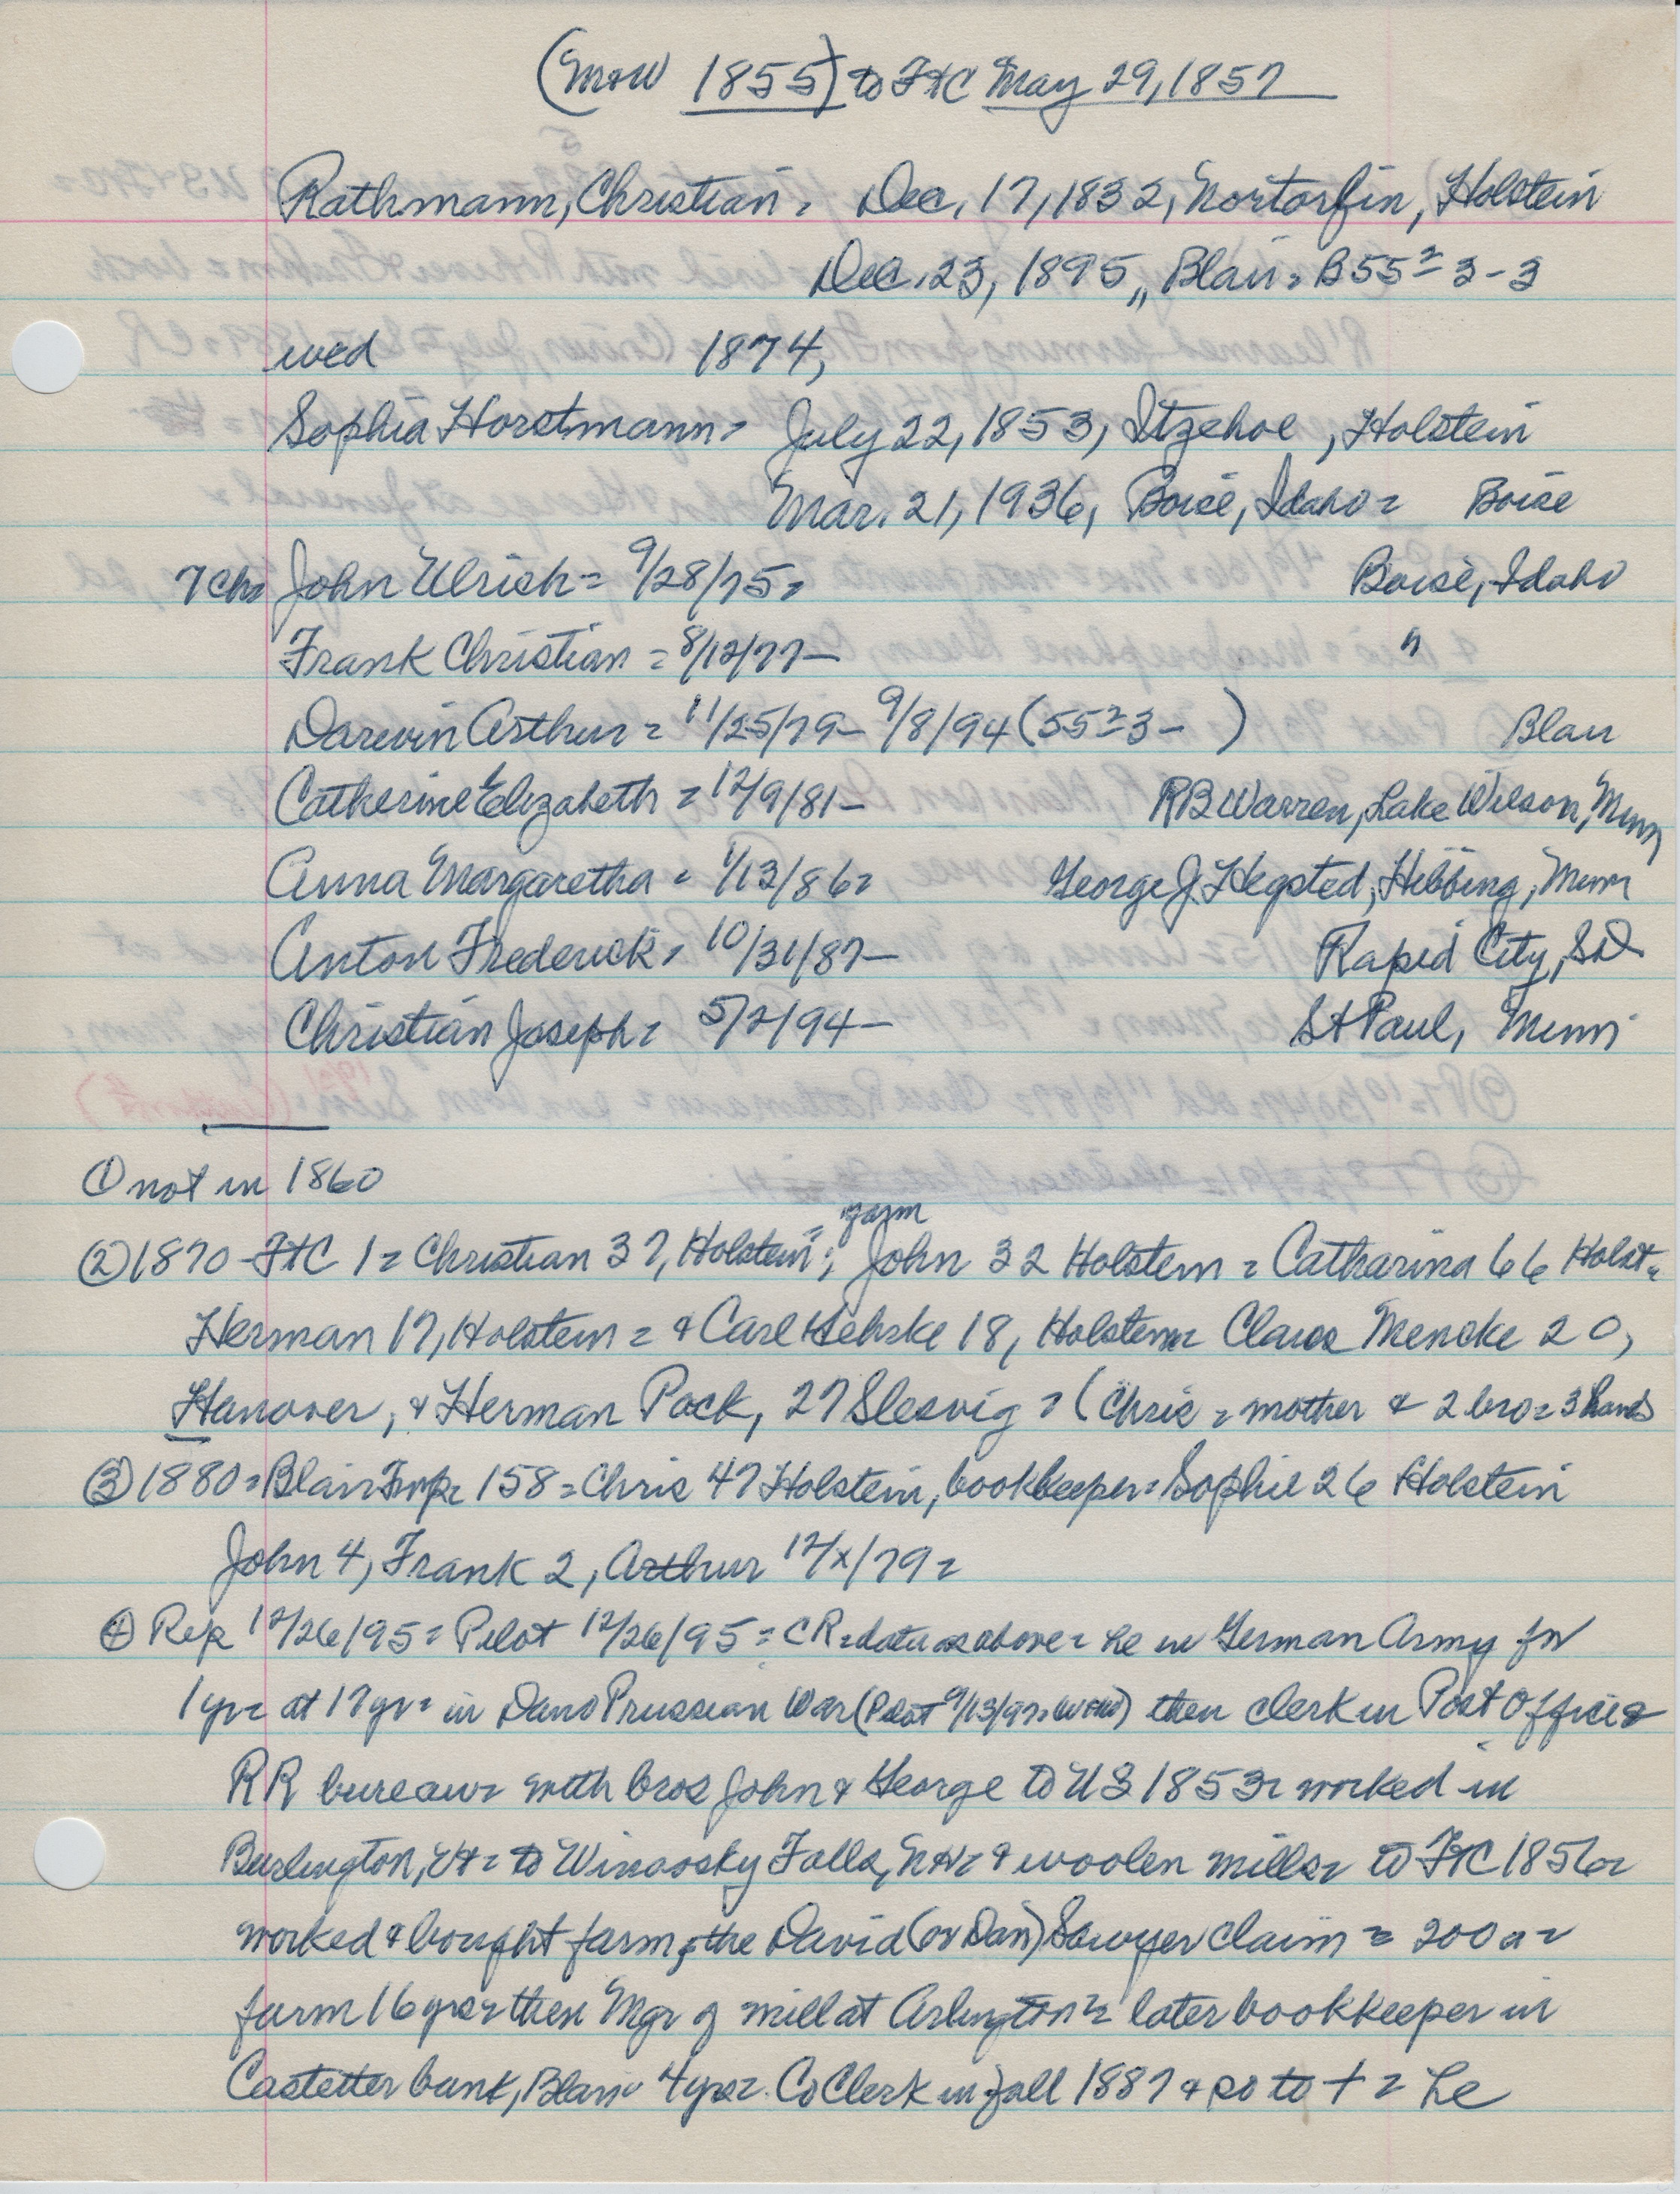 (M&W 1855) to FtC May 29, 1857
Rathmann, Christian = Dec. 17, 1832, Nortorfin, Holstein
Dec. 23, 1895,, Blair = B55=3-3
wed 1874,
Sophia Horstmann = July 22, 1853, Itzehoe, Holstein
Mar. 21, 1936, Boise, Idaho = Boise
7 ch = John Ulrich = 9/28/75 = Boise, Idaho
Frank Christian = 8/12/77 — "
Darwin Arthur = 11/25/79 – 9/8/94 (55=3- ) Blair
Catherine Elizabeth = 12/9/81 – RB Warren, Lake Wilson, Minn
Anna Margaretha = 1/13/86 = George J. Hegsted, Hibbing, Minn
Anton Frederick = 10/31/87 — Rapid City, SD
Christian Joseph = 5/2/94 — St Paul, Minn
① not in 1860
farm
② 1870 - FtC 1 = Christian 37, Holstein =; John 32 Holstein = Catharina 66 Holst =
Herman 17, Holstein = & Carl Hehrke 18, Holstein = Claus Mencke 20,
Hanover, & Herman Pock, 27 Slesvig = (Chris = mother & 2 bro = 3 hands
③ 1880 = Blair Twp = 158 = Chris 47 Holstein, bookkeeper = Sophie 26 Holstein
John 4, Frank 2, Arthur 12/x/79 =
④ Rep 12/26/95 = Pilot 12/26/95 = CR = data as above = he in German Army for
1 yr = at 17 yr = in Dano Prussian War (Pilot 9/13/97 = ) then clerk in Post Office &
RR bureau = with bros John & George to US 1853 = worked in
Burlington, Vt = to Winoosky Falls, NH = & woolen mills = to FtC 1856 =
worked & bought farm, the David (or Dan) Sawyer claim = 200 a =
farm 16 yrs = then Mgr of mill at Arlington = later bookkeeper in
Castetter bank, Blair 4 yrs =. Co Clerk in fall 1887 & so to + = he